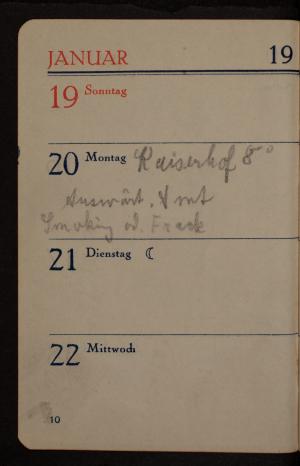 JANUAR 19
19 Sonntag
20 Montag Kaiserhof 8°
Auswärt. Amt
Smoking od. Frack
21 Dienstag ☾
22 Mittwoch
10